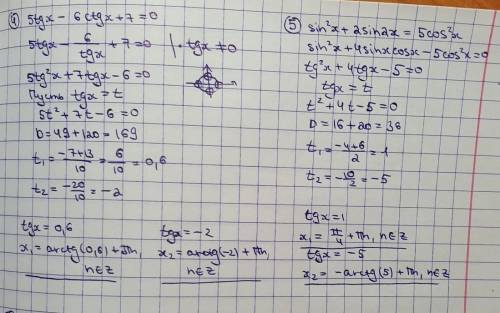 4) 5tgx - 6ctgx + 7 = 0
5tgx - 6/tgx + 7 = 0 | · tgx ≠ 0
5tg²x + 7tgx - 6 = 0
Пусть tgx = t
5t² + 7t - 6 = 0
D = 49 + 120 = 169
t₁ = (-7+13)/10 = 6/10 = 0,6
t₂ = -20/10 = -2
tgx = 0,6
x₁ = arctg(0,6) + πn,
n∈Z
tgx = -2
x₂ = arctg(-2) + πn,
n∈Z
5) sin²x + 2sin2x = 5cos²x
sin²x + 4sinxcosx - 5cos²x = 0
tg²x + 4tgx - 5 = 0
tgx = t
t² + 4t - 5 = 0
D = 16 + 20 = 36
t₁ = (-4+6)/2 = 1
t₂ = -10/2 = -5
tgx = 1
x₁ = π/4 + πn, n∈Z
tgx = -5
x₂ = -arctg(5) + πn, n∈Z